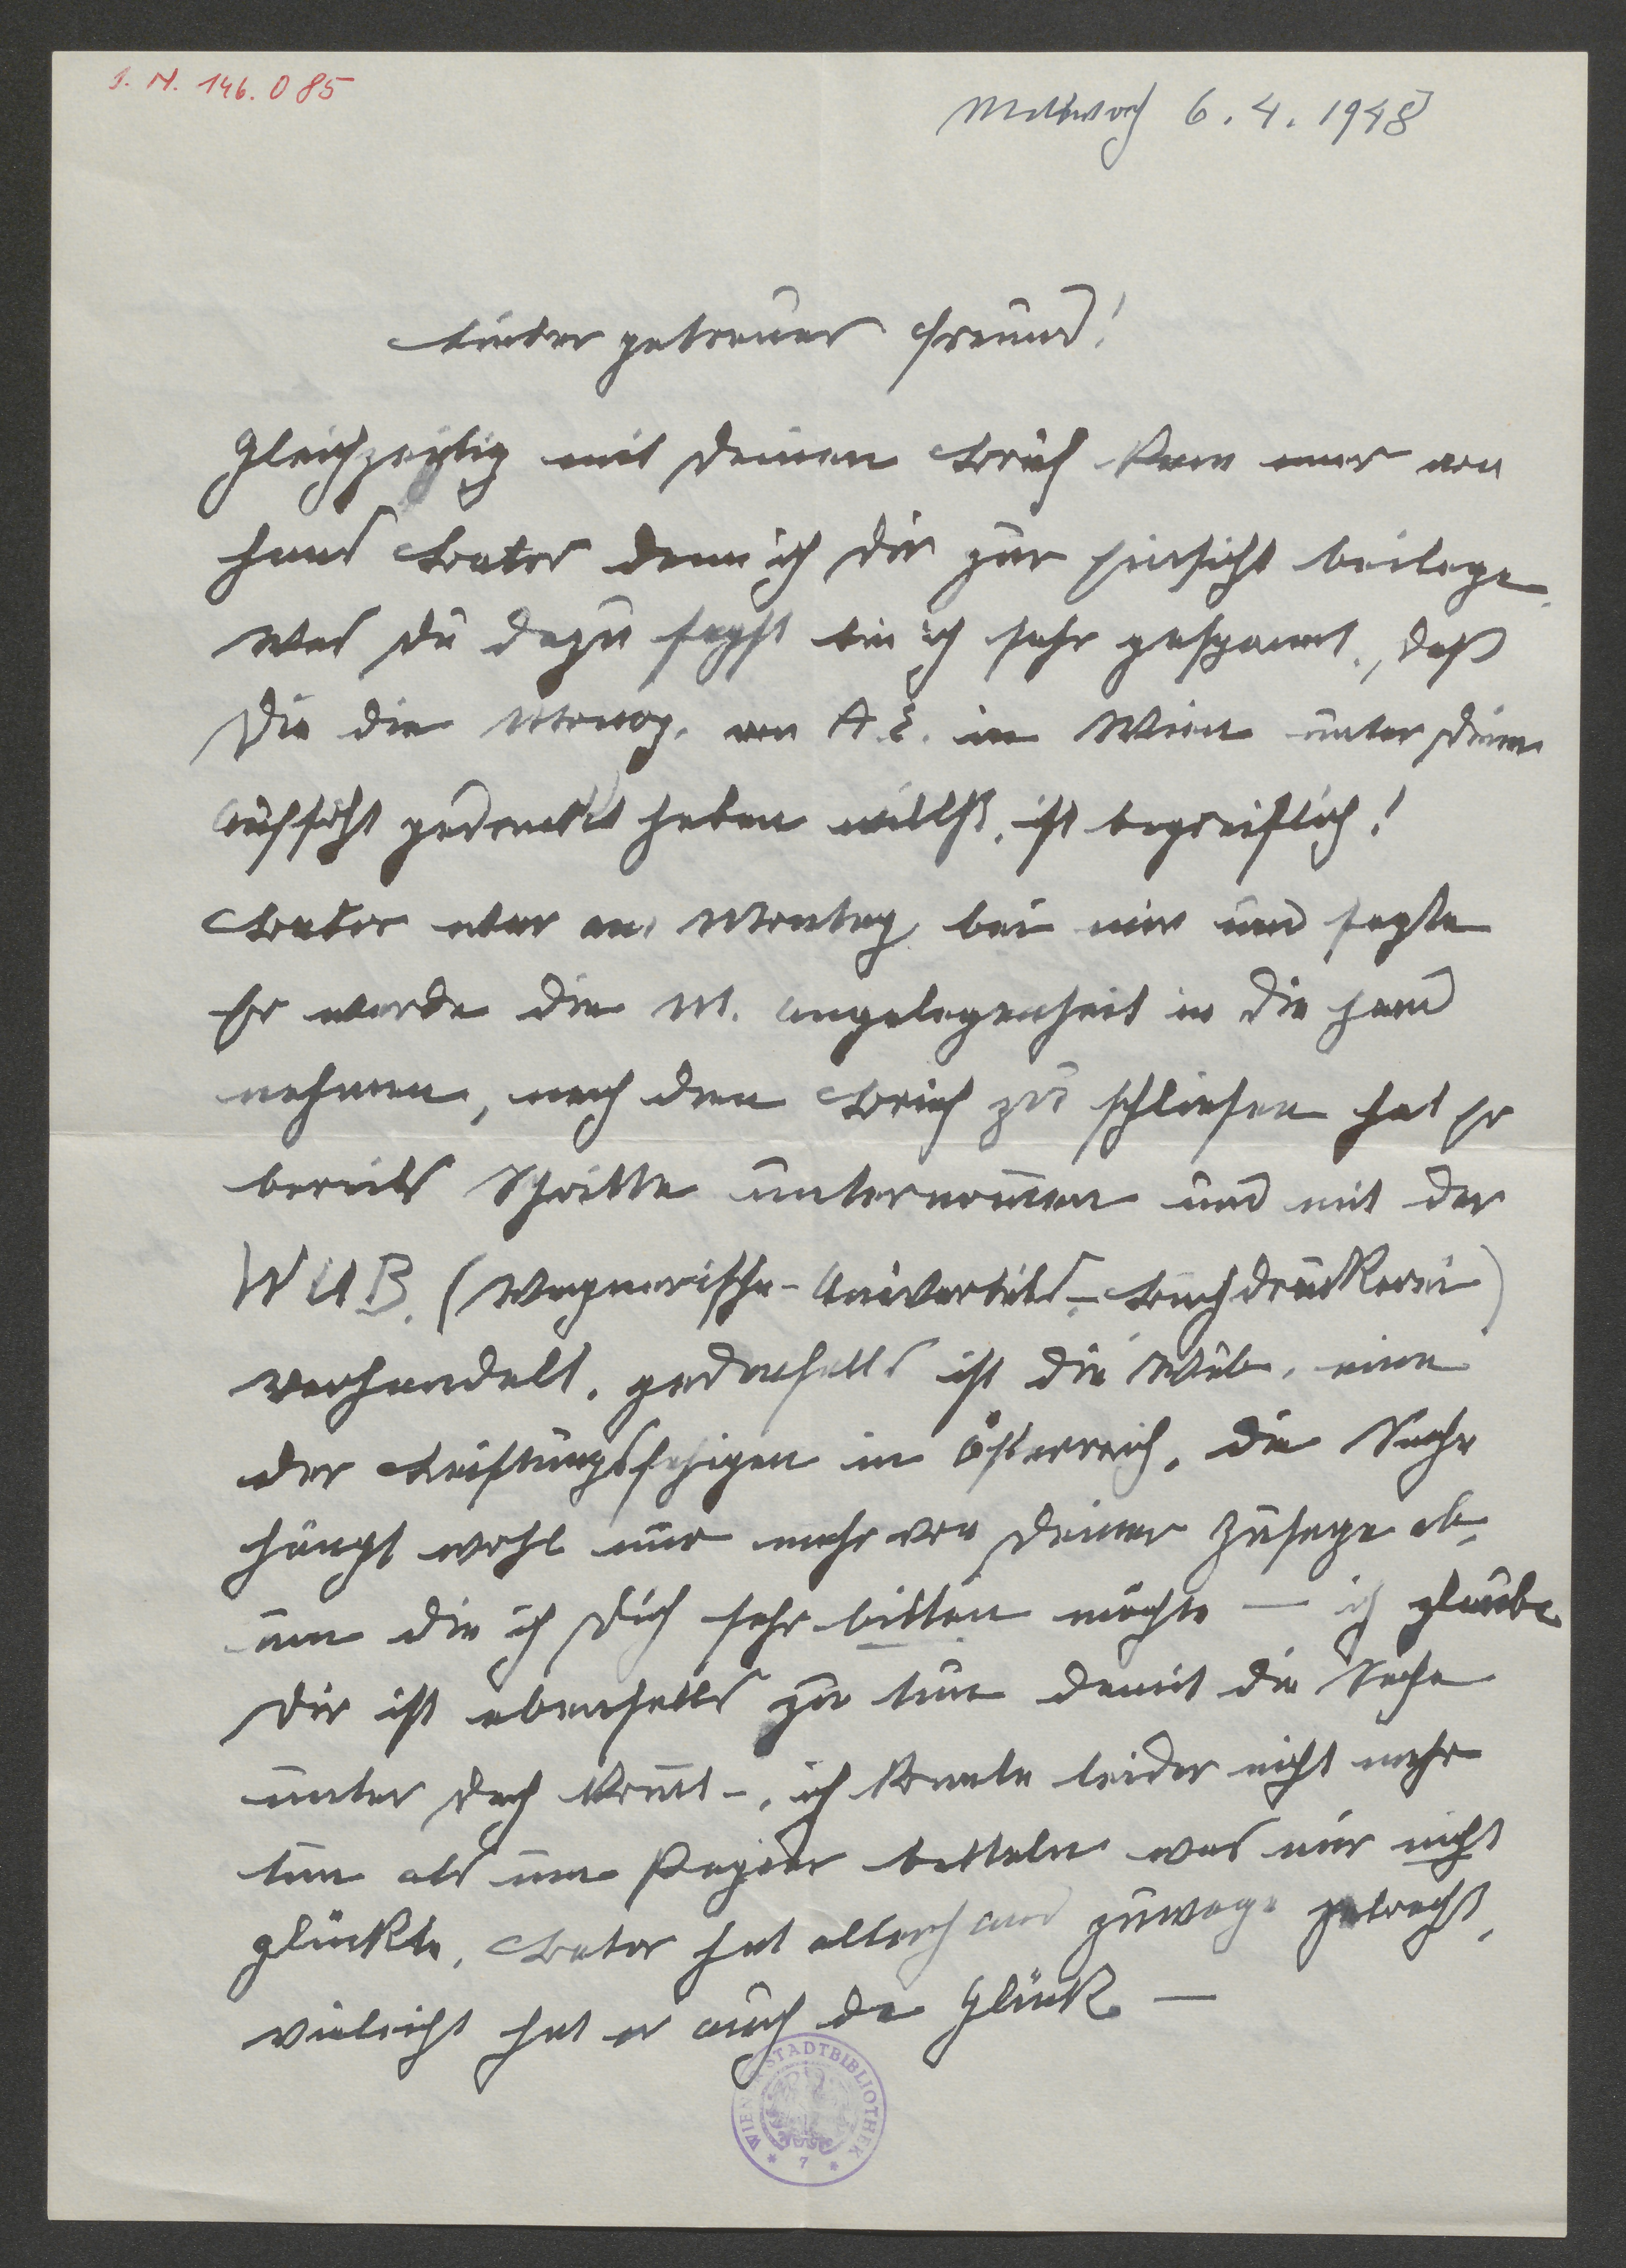 I. N. 146.085
Mittwoch 6.4.1948
Lieber getreuer Freund!
Gleichzeitig mit Deinen Brief kam mir von
Hans Bator denn ich dir zur Einsicht beilege.
Was Du dazu sagst bin ich sehr gespannt, daß
Du die Monog. von A. E. in Wien unter Deiner
Aufsicht gedruckt haben willst, ist begreiflich!
Bator war am Montag bei mir und sagte
Er werde die M. Angelegenheit in die Hand
nehmen, nach den Brief zu schliesen hat Er
bereits Schritte unternommen und mit der
WUB. (Wagnerische-Univertäts-Buchdruckerei)
verhandelt. jedenfalls ist die Wub. eine
der Leistungsfähigen in Österreich. die Sache
hängt wohl nur mehr von Deiner Zusage ab,
um die ich Dich sehr bitten möchte — ich glaube
Dir ist ebenfalls zu tun damit die Sache
unter Dach kommt -, ich konnte leider nicht mehr
tun als um Papier betteln was mir nicht
glückte. Bator hat allerhand zuwege gebracht,
vieleicht hat er auch da Glück —
WIENER STADTBIBLIOTHEK
7